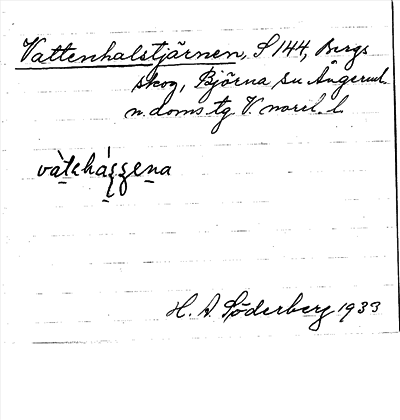 Vattenhalstjärnen, S 144, Bergs
skog, Björna sn Ångerml.
n. doms.tg V. norrl. l.
H. A. Söderberg 1933